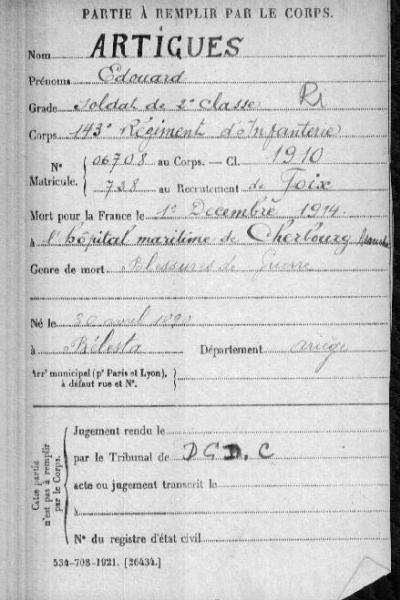 PARTIE À REMPLIR PAR LE CORPS.
Nom ARTIGUES
Prénoms Edouard
Grade Soldat de 2e Classe R1
Corps 143e Régiment d'Infanterie
N° Matricule. { 06708 au Corps. — Cl. 1910
738 au Recrutement de Foix
Mort pour la France le 12 Décembre 1914
à l'hôpital maritime de Cherbourg Manche
Genre de mort Blessures de Guerre
Né le 30 avril 1890
à Bélesta Département Ariège
Arrt municipal (pr Paris et Lyon), à défaut rue et N°. }
Cette partie n'est pas à remplir par le Corps.
Jugement rendu le
par le Tribunal de D G D. C
acte ou jugement transcrit le
à
N° du registre d'état civil
534-708-1921. [26434.]